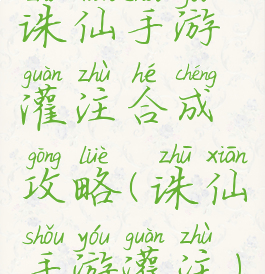 诛仙手游
guàn zhù hé chéng
灌注合成
gōng lüè zhū xiān
攻略(诛仙
shǒu yóu guàn zhù
手游灌注)